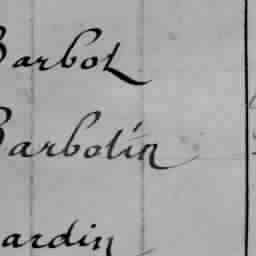 Barbot
Barbotin
ardin